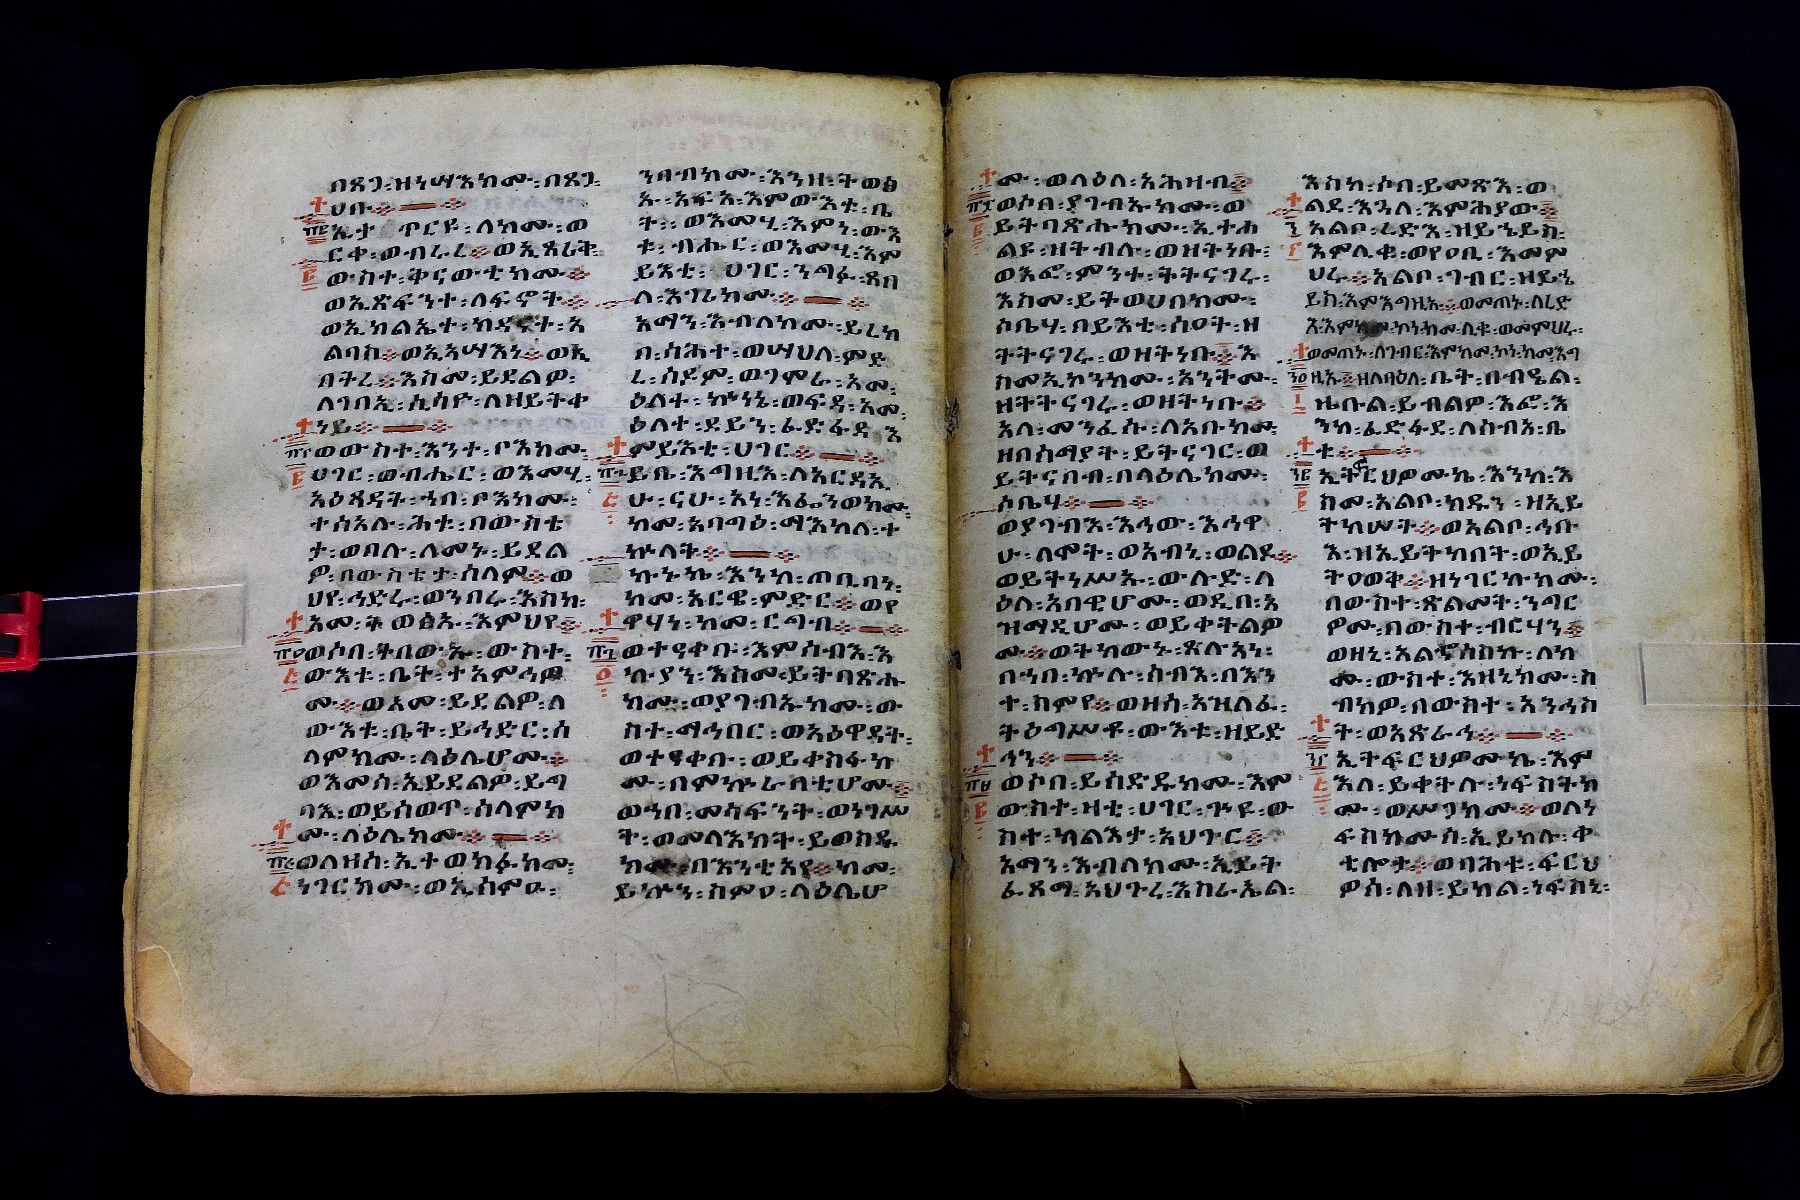 በጸጋ፡ዘነሣእክሙ፡በጸጋ፡
ሀቡ
ኢታጥርዩ፡ለክሙ፡ወ
ርቀ፡ወብሩረ፡ወኢጸሪቀ፡
ውስተ፡ቅናውቲክሙ
ወኢጽፍንተ፡ለፍኖት
ወኢክልኤተ፡ክዳናተ፡አ
ልባሰ፡ወኢአሣእነ፡ወኢ
በትረ፡እስመ፡ይደልዎ፡
ለገባኢ፡ሲሳዮ፡ለዘይትቀ
ነይ
ወውስተ፡እንተ፡ቦእክሙ፡
ሀገር፡ወብሔር፡ወእመሂ፡
አዕጻዳት፡ኀበ፡ቦእክሙ፡
ተሰአሉ፡ሕቱ፡በውስቴ
ታ፡ወባሉ፡ለመኑ፡ይደል
ዎ፡በውስቴታ፡ሰላም፡ወ
ህየ፡ኅድሩ፡ወንበሩ፡እስከ፡
አመ፡ትወፅኡ፡እምህየ
ወሶበ፡ትበውኡ፡ውስተ፡
ውእቱ፡ቤት፡ተአምኅዎ
ሙ፡ወእመ፡ይደልዎ፡ለ
ውእቱ፡ቤት፡ይኅድር፡ሰ
ላምክሙ፡ላዕሌሆሙ
ወእመሰ፡ኢይደልዎ፡ይግ
ባእ፡ወይሰወጥ፡ሰላምክ
ሙ፡ላዕሌክሙ
ወለዘሰ፡ኢተወክፈክሙ፡
ነገርክሙ፡ወኢሰምዑ፡
ንዛብክሙ፡እንዘ፡ትወፅ
ኡ፡አፍአ፡እምውእቱ፡ቤ
ት፡ወእመሂ፡እምነ፡ውእ
ቱ፡ብሔር፡ወእመሂ፡እም
ይእቲ፡ሀገር፡ንግፉ፡ጸበ
ለ፡እገሪክሙ
አማን፡እብለክሙ፡ይረክ
ቡ፡ስሕተ፡ወሣህለ፡ምድ
ረ፡ሰዶም፡ወገሞራ፡አመ፡
ዕለተ፡ኵነኔ፡ወፍዳ፡አመ፡
ዕለተ፡ደይን፡ፈድፋደ፡እ
ምይእቲ፡ሀገር
ይቤ፡እግዚእ፡ለአርዳኢ
ሁ፡ናሁ፡አነ፡እፌንወክሙ፡
ከመ፡አባግዕ፡ማእከለ፡ተ
ኵላት
ኩኑኬ፡እንከ፡ጠቢባነ፡
ከመ፡አርዌ፡ምድር፡ወየ
ዋሃነ፡ከመ፡ርግብ
ወተዓቀቡ፡እምሰብእ፡እ
ኩያን፡እስመ፡ይትባጽሑ
ክሙ፡ወያገብኡክሙ፡ው
ስተ፡ማኅበር፡ወአዕዋዳት፡
ወተዓቀቡ፡ወይቀስፉክ
ሙ፡በምኵራባቲሆሙ
ወኀበ፡መሳፍንት፡ወነገሥ
ት፡ወመላእክት፡ይወስዱ
ክሙ፡በእንቲአየ፡ከመ፡
ይኩን፡ስምዐ፡ላዕሌሆ
ሙ፡ወላዕለ፡አሕዛብ
ወሶበ፡ያገብኡክሙ፡ወ
ይትባጽሑክሙ፡ኢተሐ
ልዩ፡ዘትብሉ፡ወዘትነቡ፡
ወእፎ፡ምንተ፡ትትናገሩ፡
እስመ፡ይትወሀበክሙ፡
ሶቤሃ፡በይእቲ፡ሰዐት፡ዘ
ትትናገሩ፡ወዘትነቡ፡እ
ስመ፡ኢኮንክሙ፡አንትሙ፡
ዘትትናገሩ፡ወዘትነቡ
አላ፡መንፈሱ፡ለአቡክሙ፡
ዘበሰማያት፡ይትናገር፡ወ
ይትናበብ፡በላዕሌክሙ፡
ሶቤሃ
ወያገብእ፡እኅው፡እኅዋ
ሁ፡ለሞት፡ወአብኒ፡ወልዶ
ወይትነሥኡ፡ውሉድ፡ላ
ዕለ፡አበዊሆሙ፡ወዲበ፡አ
ዝማዲሆሙ፡ወይቀትልዎ
ሙ፡ወትከውኑ፡ጽሉአነ፡
በኀበ፡ኵሉ፡ሰብእ፡በእን
ተ፡ስምየ፡ወዘሰ፡አዝለፈ፡
ትዕግሥቶ፡ውእቱ፡ዘይድ
ኅን
ወሶበ፡ይሰድዱክሙ፡እም
ውስተ፡ዛቲ፡ሀገር፡ጕዩ፡ው
ስተ፡ካልእታ፡አህጉር
አማን፡እብለክሙ፡ኢይት
ፌጸማ፡አህጉረ፡እስራኤል፡
እስከ፡ሶበ፡ይመጽእ፡ወ
ልደ፡እጓለ፡እምሕያው
አልቦ፡ረድእ፡ዘይኄይስ፡
እምሊቁ፡ወየዐቢ፡እመም
ህሩ፡አልቦ፡ገብር፡ዘይኄ
ይስ፡እምእግዚኡ፡ወመጠኑ፡ለረድ
እ፡እምከመ፡ኮነ፡ከመ፡ሊቁ፡ወመምህሩ፡
ወመጠኑ፡ለገብር፡እምከመ፡ኮነ፡ከመ፡እግ
ዚኡ፡ዘለባዕለ፡ቤት፡በብዔል፡
ዜቡል፡ይብልዎ፡እፎ፡እ
ንከ፡ፈድፋደ፡ለሰብአ፡ቤ
ቱ
ኢትፍርህዎሙኬ፡እንከ፡እ
ስመ፡አልቦ፡ክዱን፡ዘኢይ
ትከሠት፡ወአልቦ፡ኅቡ
እ፡ዘኢይትከበት፡ወኢይ
ትዐወቅ፡ዘነገርኩክሙ፡
በውስተ፡ጽልመት፡ንግር
ዎሙ፡በውስተ፡ብርሃን
ወዘኒ፡አልኆሰስኩ፡ለክ
ሙ፡ውስተ፡እዝኒክሙ፡ስ
ብክዎ፡በውስተ፡አንኃስ
ት፡ወአጽራኅ
ኢትፍርህዎሙኬ፡እም
እለ፡ይቀትሉ፡ነፍስትክ
ሙ፡ወሥጋክሙ፡ወለነ
ፍስክሙሰ፡ኢይክሉ፡ቀ
ቲሎታ፡ወባሕቱ፡ፍርህ
ዎሰ፡ለዘ፡ይክል፡ነፍስኒ፡